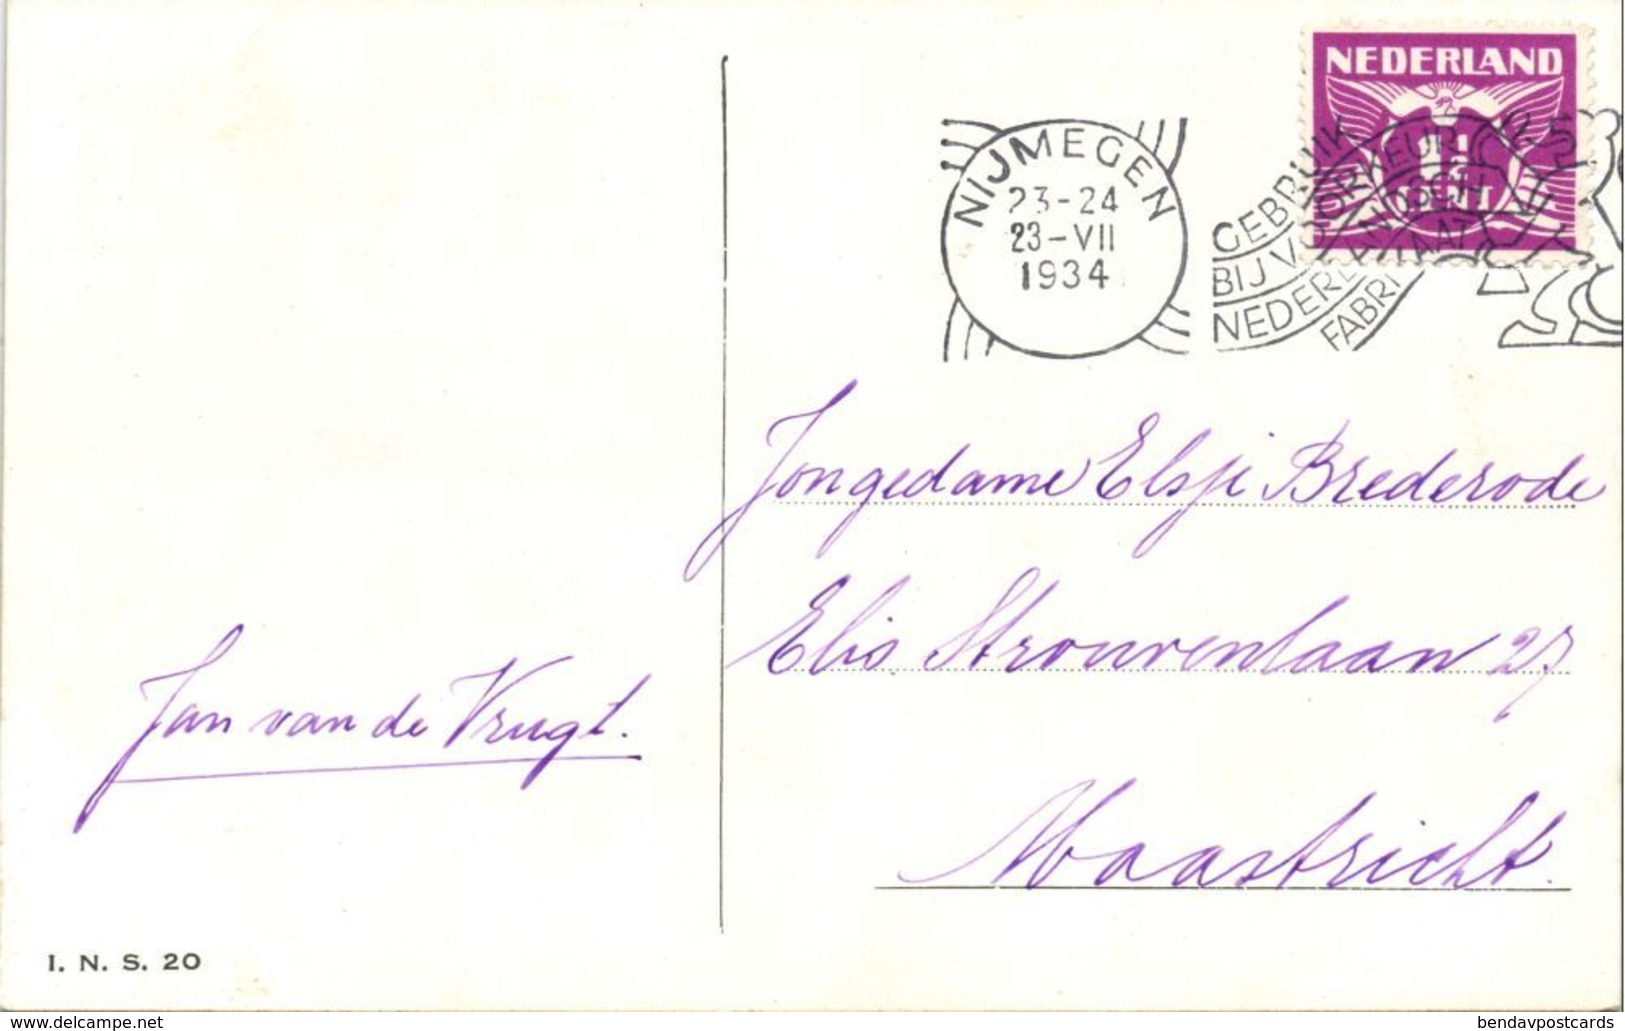 NEDERLAND
NIJMEGEN
23-24
23-VII
1934
GEBRUIK
BIJ VOORKEUR
NEDERLANDSCH
FABRIKAAT
Jongedame Elsje Brederode
Elis. Strouvenlaan 27
Maastricht.
Jan van de Vrugt.
I. N. S. 20
www.delcampe.net
bendavpostcards